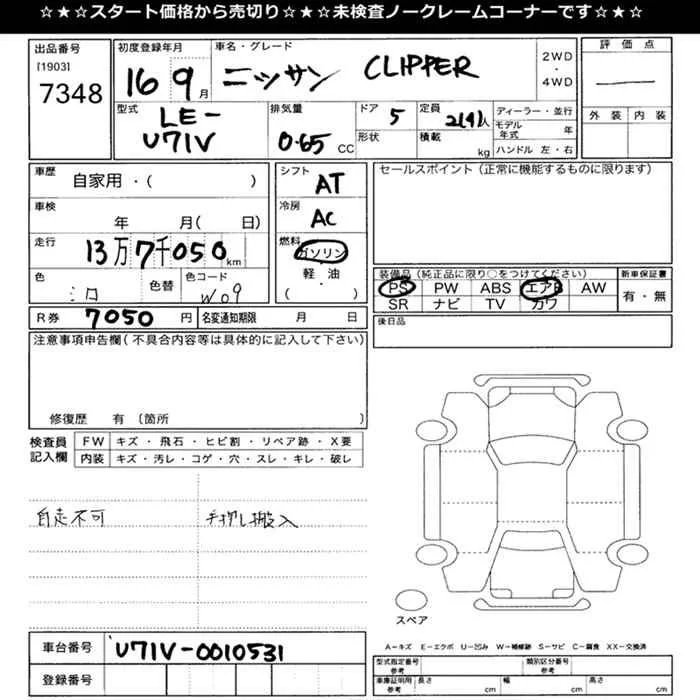 ☆★☆★スタート価格から売切り☆★☆★未検査ノークレームコーナーです☆★☆★
出品番号
[1903]
7348
初度登録年月
16 9月
車名・グレード
ニッサン CLIPPER
2WD
・
4WD
評価点
外装 内装
型式
LE-
U71V
排気量
0.65 CC
ドア 5
形状
定員
2[4]人
積載
kg
ディーラー・並行
モデル年式 年
ハンドル 左・右
車歴
自家用・( )
車検
年 月( 日)
走行
13万7千050km
色
シロ
色替
色コード
W09
シフト
AT
冷房
AC
燃料
ガソリン
軽・油
( )
セールスポイント(正常に機能するものに限ります)
装備品(純正品に限り○をつけてください)
PS PW ABS エアB AW
SR ナビ TV カワ
新車保証書
有・無
R券 7050 円
名変通知期限 月 日
後日品
注意事項申告欄(不具合内容等は具体的に記入して下さい)
修復歴 有〔箇所 〕
検査員
記入欄
FW キズ・飛石・ヒビ割・リペア跡・X要
内装 キズ・汚レ・コゲ・穴・スレ・キレ・破レ
自走不可 手押し搬入
スペア
車台番号 U71V-0010531
登録番号
A-キズ E-エクボ U-凹み W-補修跡 S-サビ C-腐食 XX-交換済
型式指定番号
参考
類別区分番号
参考
車庫証明用
参考
長さ cm 幅 cm 高さ cm